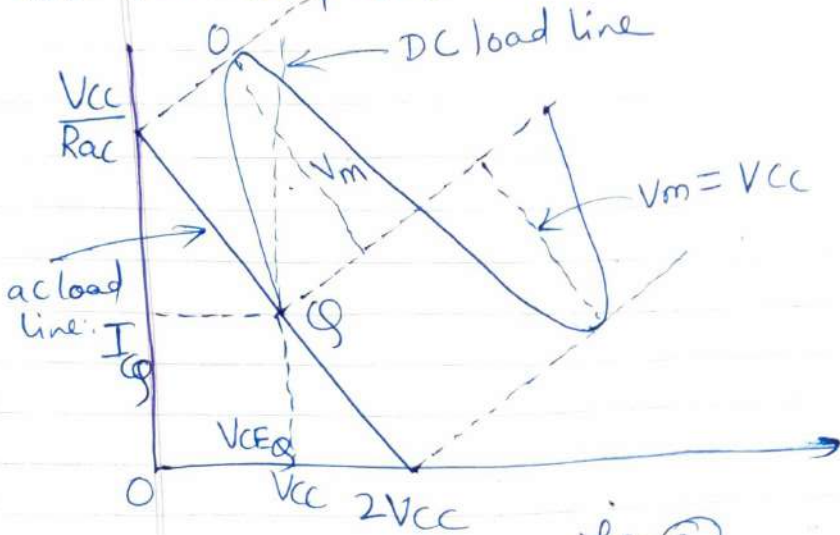 O
DC load line
VCC
Rac
Vm
Vm = VCC
ac load
line:
ICQ
Q
VCEQ
O
VCC
2VCC